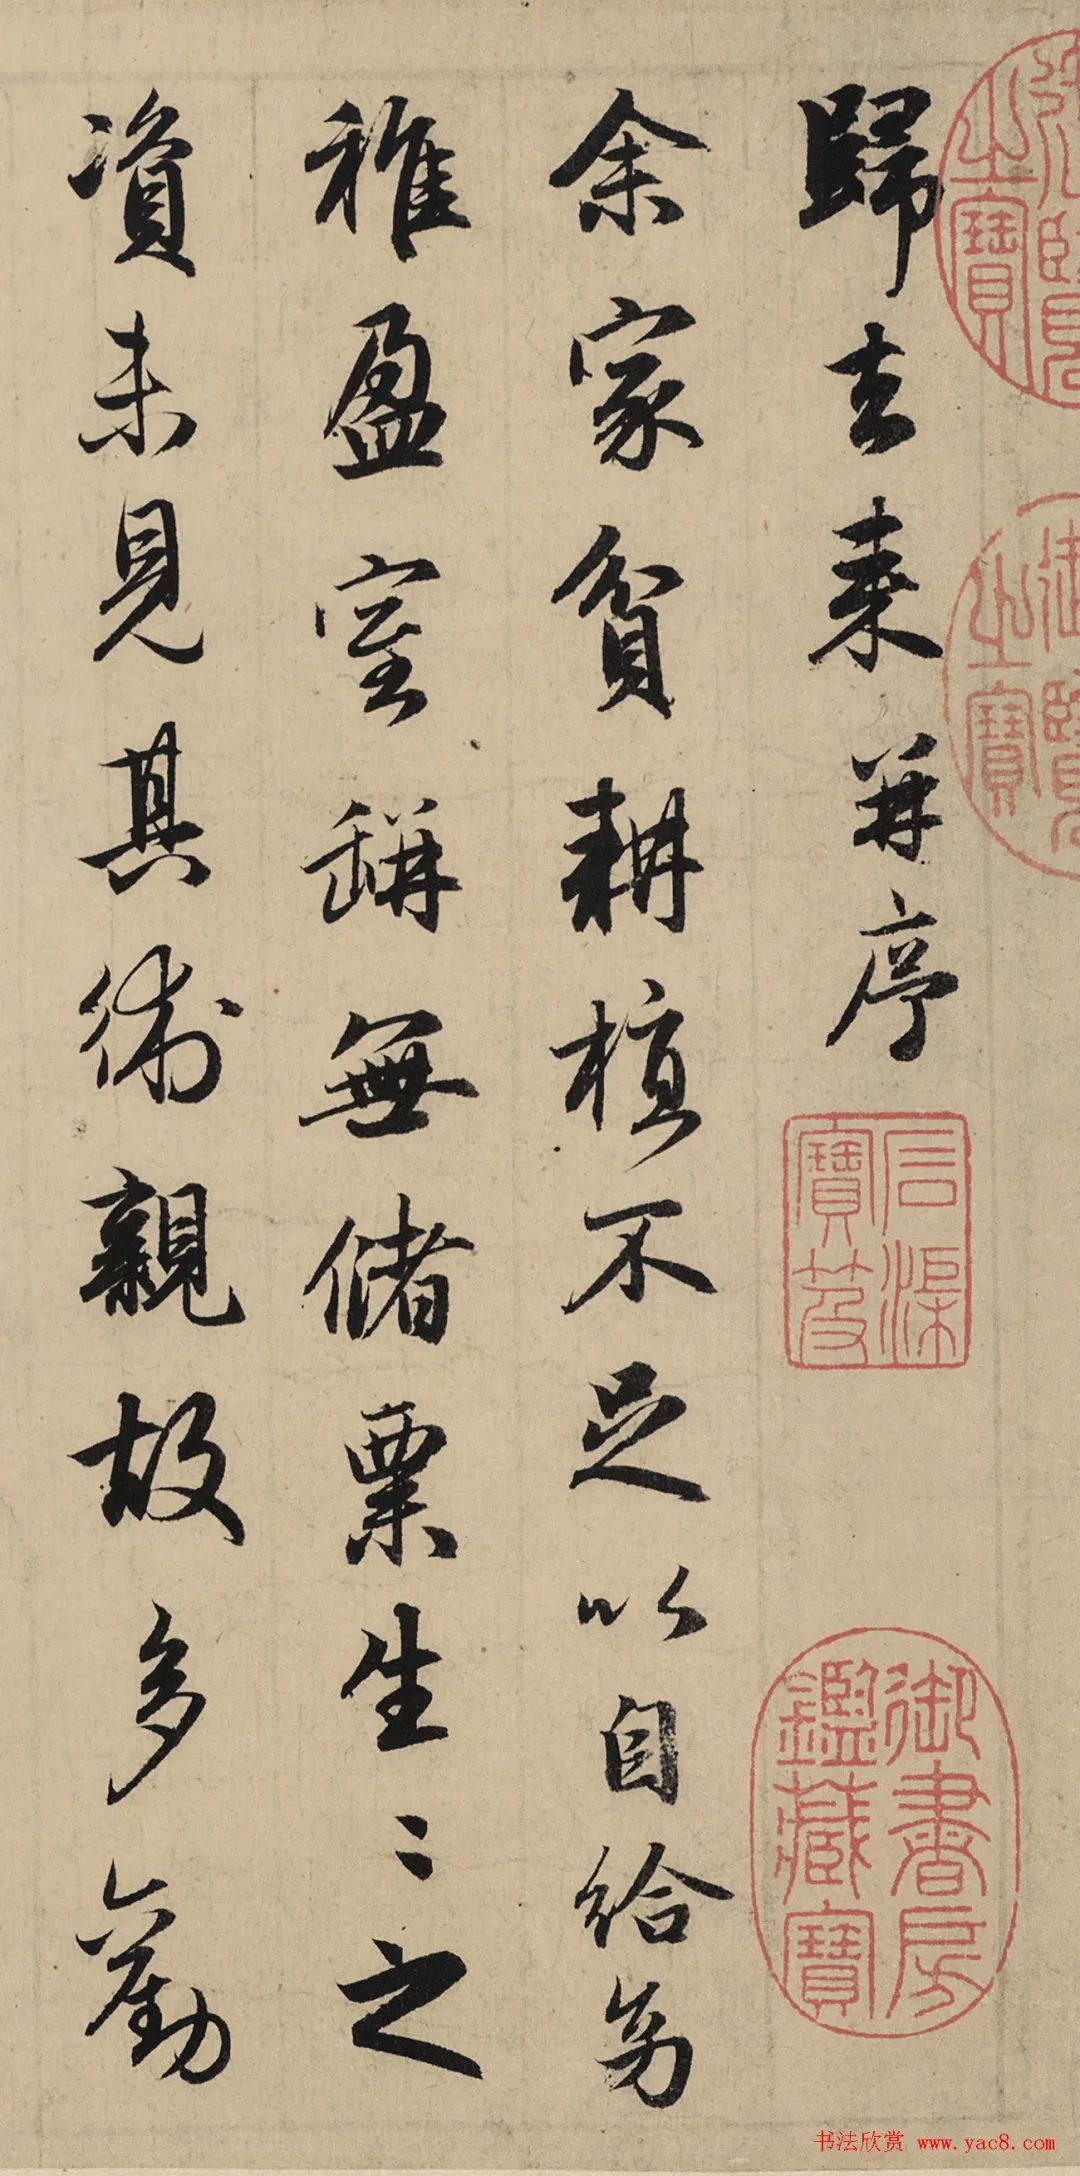 御覽之寶
歸去来并序
石渠寶笈
御書房鑑藏寶
余家貧耕植不足以自給幼
稚盈室缾無儲粟生〻之
資未見其術親故多勸
书法欣赏 www.yac8.com